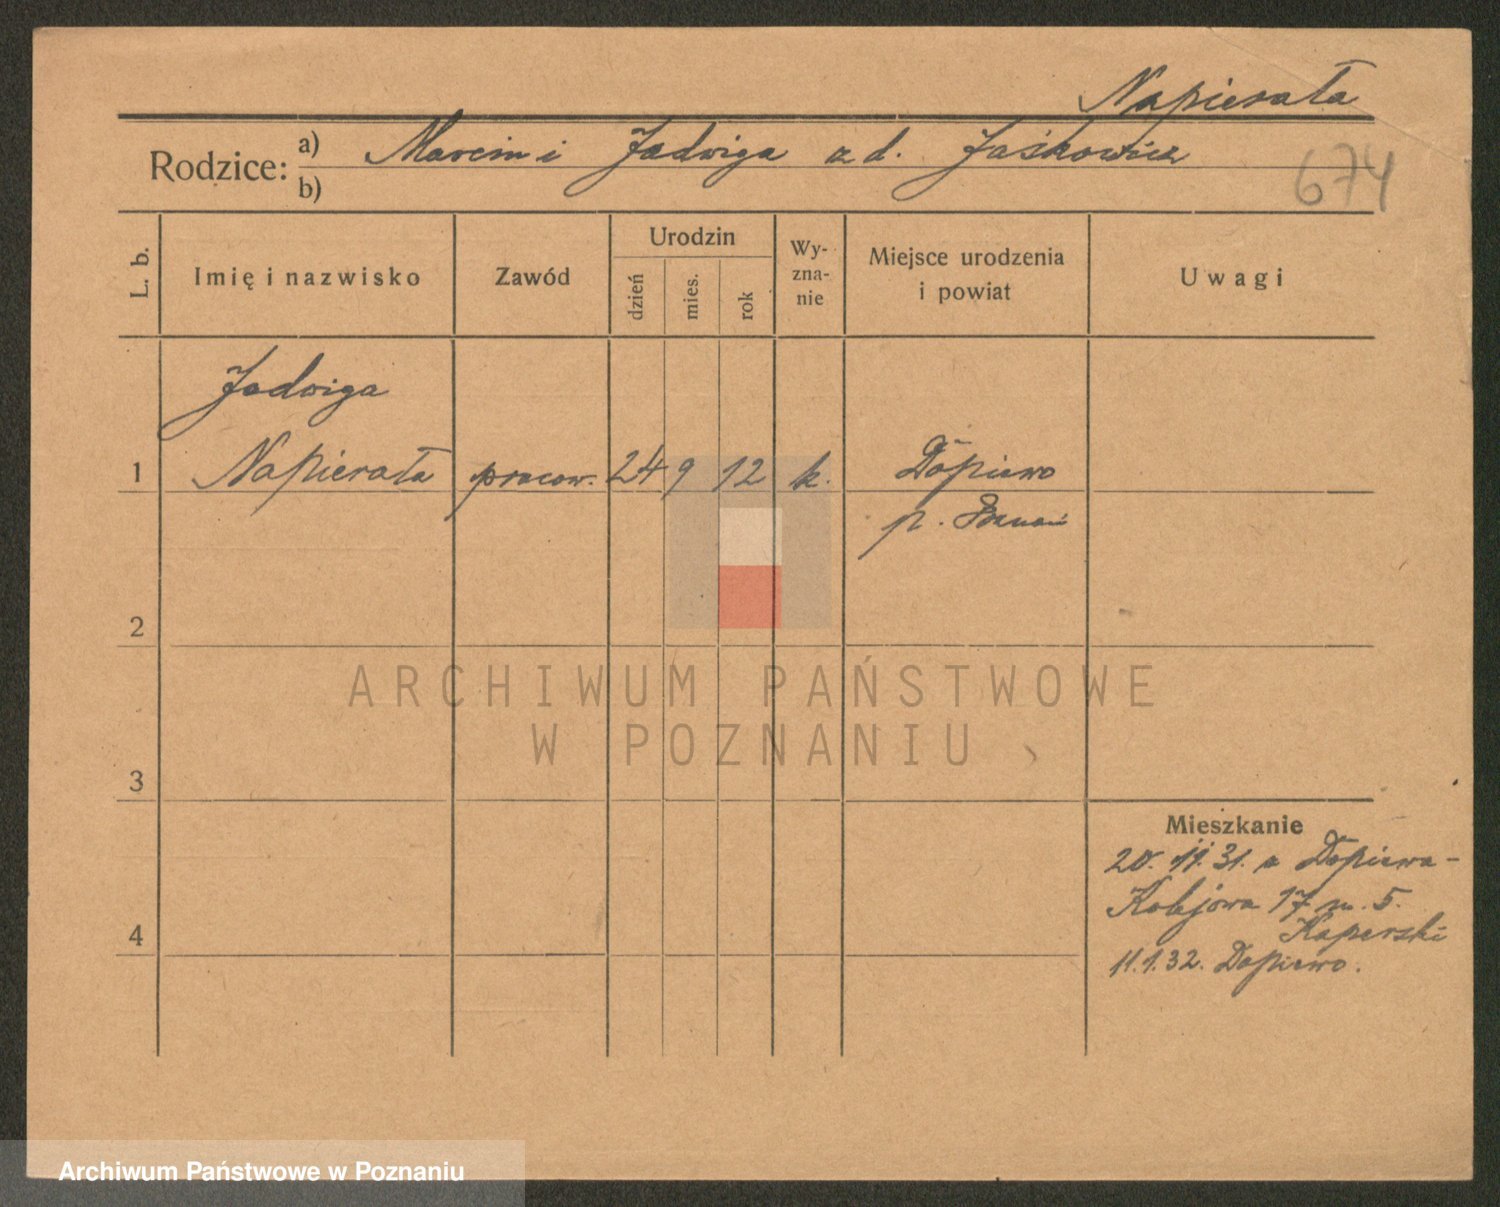 Napierała
Rodzice: a) Marcin i Jadwiga z d. Jaśkowicz
b)
674
L. b.
Imię i nazwisko
Zawód
Urodzin
dzień
mies.
rok
Wy-
zna-
nie
Miejsce urodzenia
i powiat
Uwagi
Jadwiga
1 Napierała pracow. 24 9 12 k. Dopiewo
p. Poznań
2
ARCHIWUM PAŃSTWOWE
W POZNANIU
3
Mieszkanie
20. 11. 31. z Dopiewa-
Kolejowa 17 m. 5.
Kaperski
4
11.1.32. Dopiewo.
Archiwum Państwowe w Poznaniu